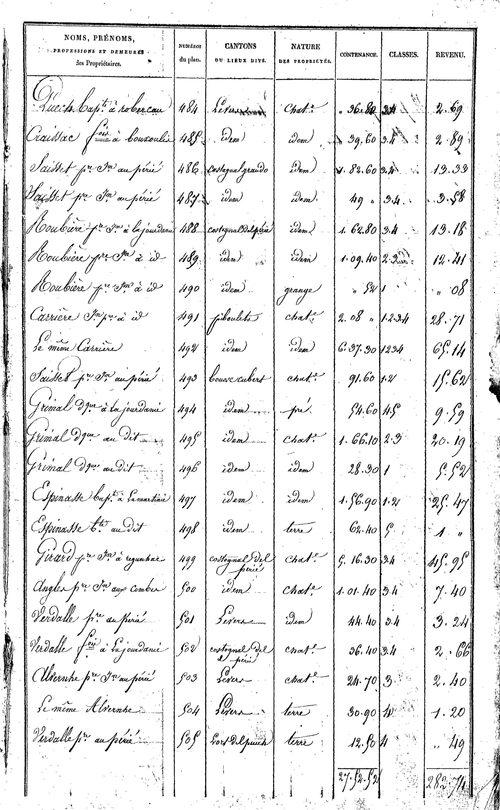 NOMS, PRÉNOMS, PROFESSIONS ET DEMEURES des Propriétaires. | NUMÉROS du plan. | CANTONS OU LIEUX DITS. | NATURE DES PROPRIÉTÉS. | CONTENANCE. | CLASSES. | REVENU.
bap.te à | 484 | Levers | chat.e | „ 36.80 | 3.4 | 2.69
Craissac fois à bouzoulie | 485 | idem | idem | „ 39.60 | 3.4 | 2.89
Saisset pre Jn au périé | 486 | costognal grando | idem | 1.82.60 | 3.4 | 13.33
Saisset pre Jn au périé | 487 | idem | idem | 49 „ | 3.4 | 3.58
Roubière pre Jn à lajourdanie | 488 | costognal del périé | idem | 1.62.80 | 3.4 | 13.18
Roubière pre Jn à id | 489 | idem | idem | 1.09.40 | 2.3 | 12.41
Roubière pre Jn à id | 490 | idem | grange | „ 52 | 1 | „ 08
Carrière Jn pre à id | 491 | piboulets | chat.e | 2.08 „ | 1.2.3.4 | 28.71
Le même Carrière | 492 | idem | idem | 6.37.30 | 1234 | 65.14
Saisset pre Jn au périé | 493 | | chat.e | 91.60 | 1.2 | 15.62
Grimal dque à la jourdanie | 494 | idem | pré | 54.60 | 4.5 | 9.59
Grimal dque au dit | 495 | idem | chat.e | 1.66.10 | 2.3 | 20.19
Grimal dque au dit | 496 | idem | idem | 28.30 | 1 | 5.52
Espinasse bap.te à Lemartinie | 497 | idem | idem | 1.56.90 | 1.2 | 25.47
Espinasse bte au dit | 498 | idem | terre | 62.40 | 5 | 1 „
Girard pre Jn à | 499 | costognal del périé | chat.e | 5.16.30 | 3.4 | 45.95
Angles pre Jn aux combes | 500 | idem | chat.e | 1.01.40 | 3.4 | 7.40
Verdalle pre au périé | 501 | Levers | idem | 44.40 | 3.4 | 3.24
Verdalle fois à Lajourdanie | 502 | costognal del périé | chat.e | 36.40 | 3.4 | 2.66
Alvernhe pre Jn au périé | 503 | Levers | chat.e | 24.70 | 3 | 2.40
Le même Alvernhe | 504 | Levers | terre | 30.90 | 4 | 1.20
Verdalle pre au périé | 505 | | terre | 12.50 | 4 | „ 49
27.52.52 | 282.74